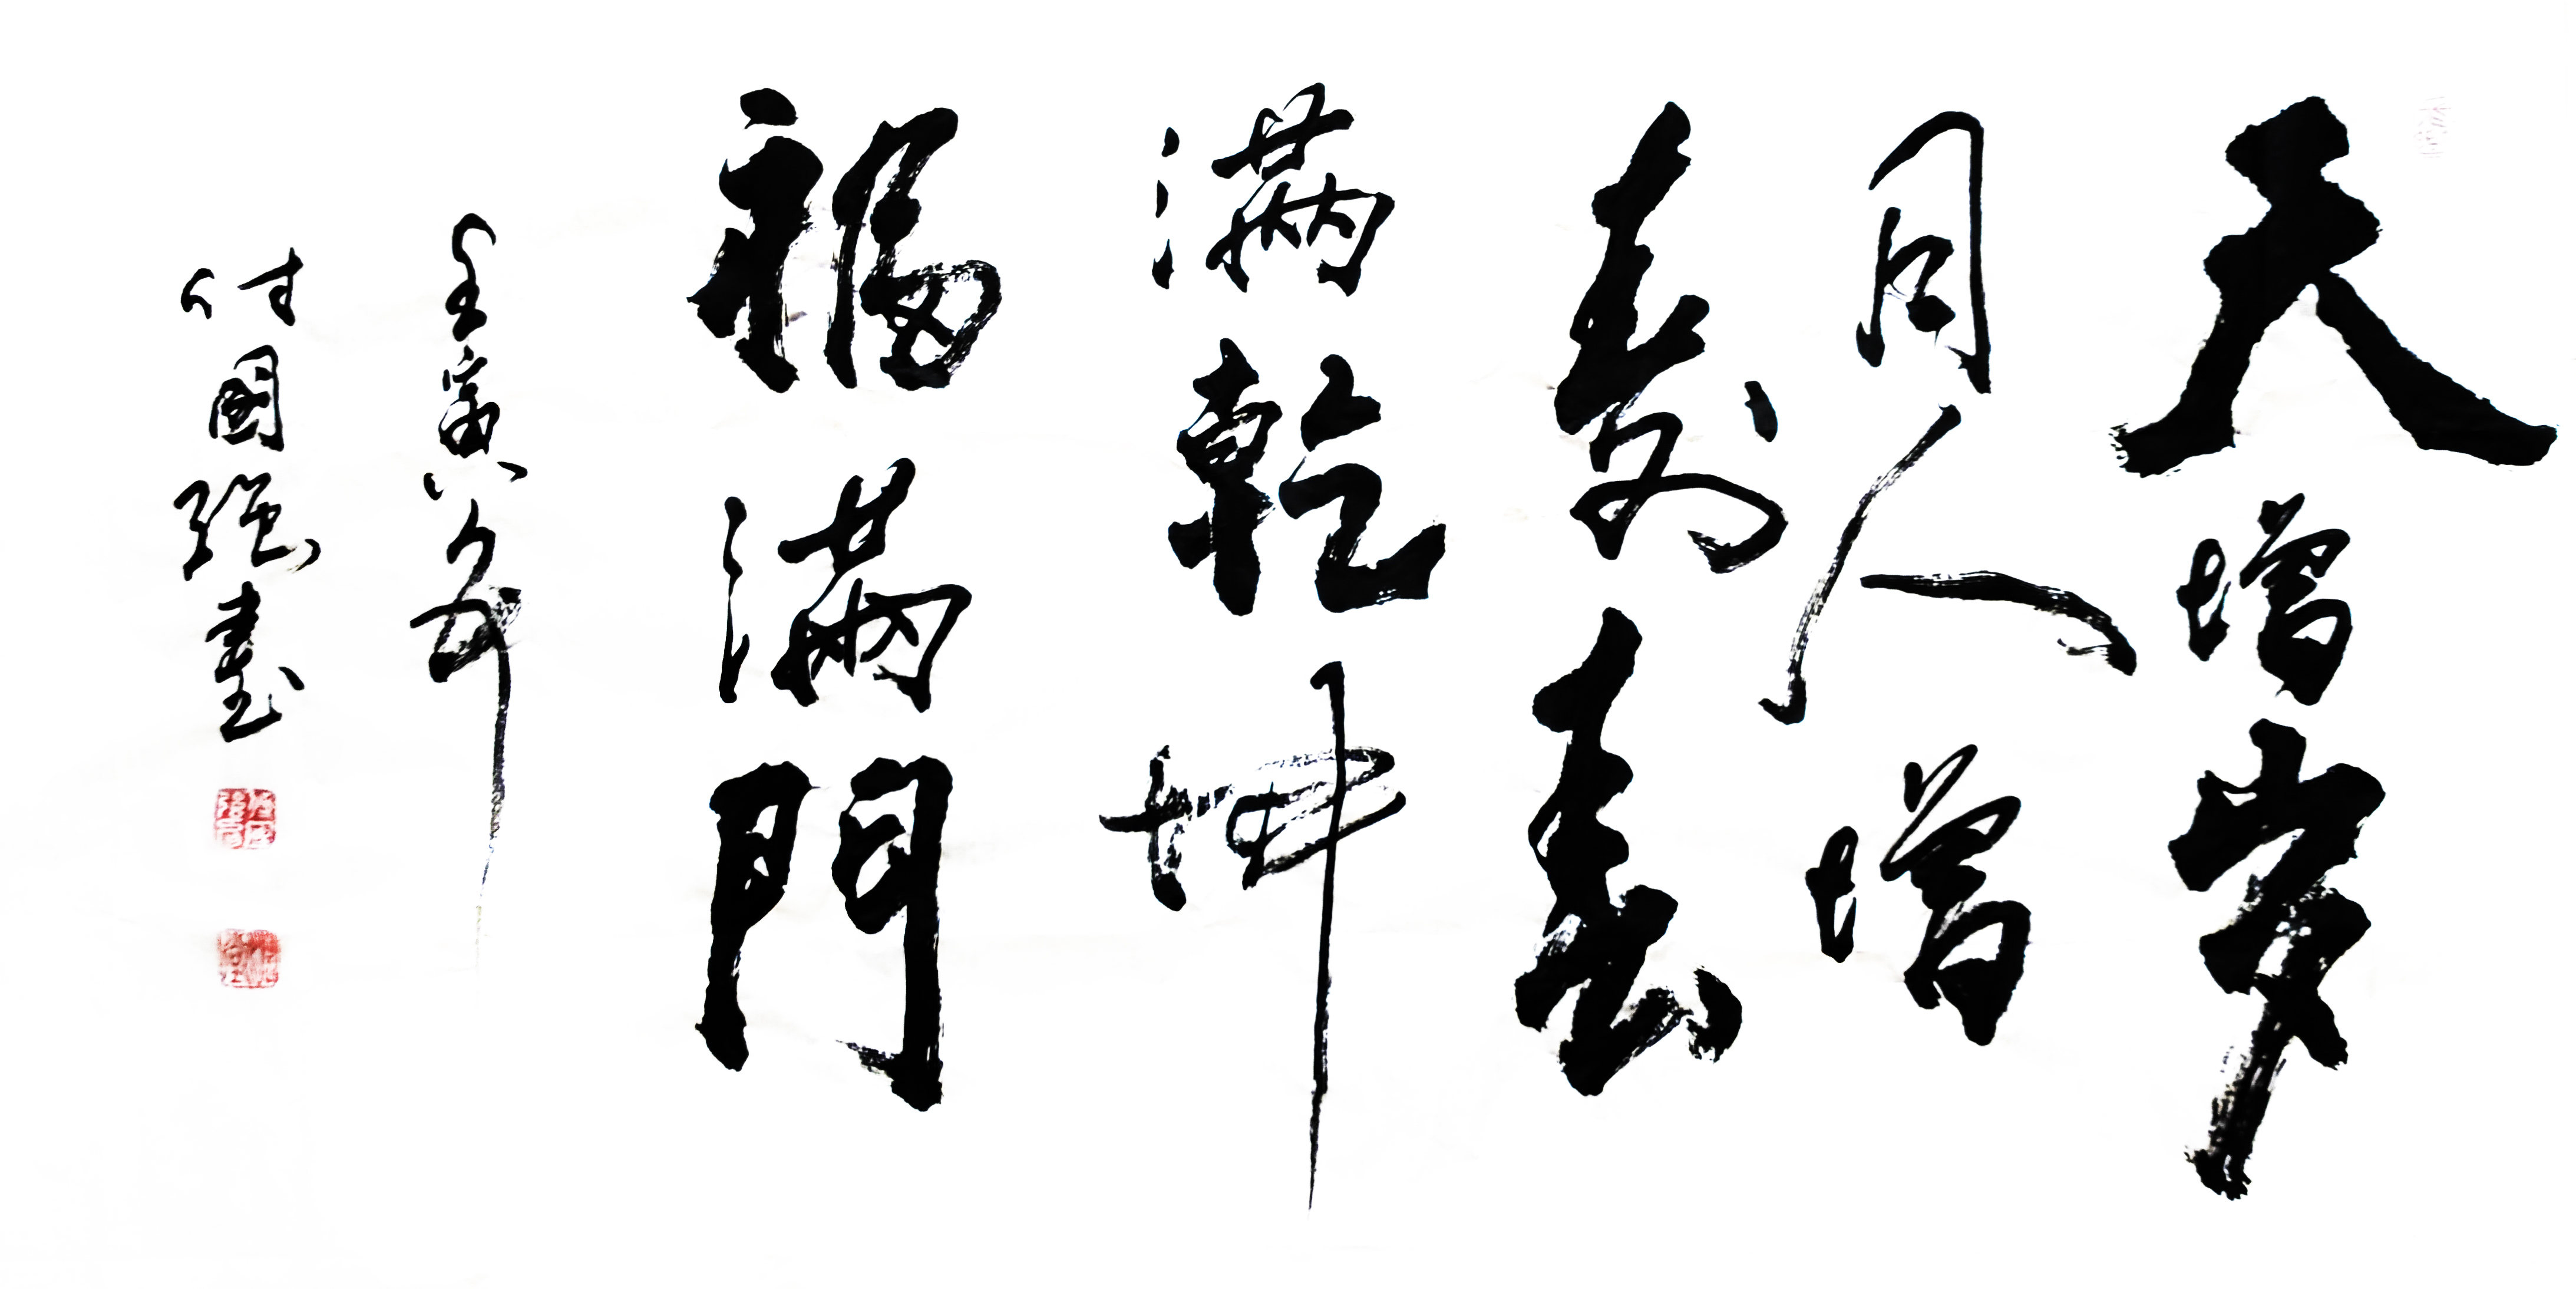 天增岁
月人增
寿春
满乾坤
福满門
壬寅年
付國强書